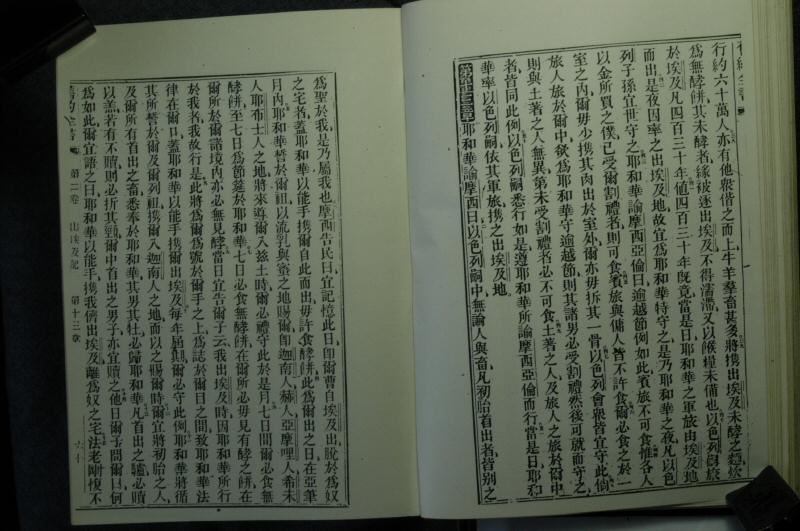 行約六十萬人亦有他衆偕之而上牛羊羣畜甚多將攜出埃及未酵之麵炊
爲無酵餅其未酵者緣被逐出埃及不得濡滯又以餱糧未備也以色列嗣旅
於埃及凡四百三十年値四百三十年旣竟當是日耶和華之軍旅由埃及地
而出是夜因率之出埃及地故宜爲耶和華特守之是乃耶和華之夜凡以色
列子孫宜世守之耶和華諭摩西亞倫曰逾越節例如此賓旅不可食惟各人
以金所買之僕已受爾割禮者則可食賓旅與傭人皆不許食爾必食之於一
室之內爾毋少攜其肉出於室外爾亦毋折其一骨以色列會衆皆宜守此倘
旅人旅於爾中欲爲耶和華守逾越節則其諸男必受割禮然後可就而守之
則與土著之人無異第未受割禮者必不可食土著之人及旅人之旅於爾中
者皆同此例以色列嗣悉行如是遵耶和華所諭摩西亞倫而行當是日耶和
華率以色列嗣依其軍旅攜之出埃及地
第十三章耶和華諭摩西曰以色列嗣中無論人與畜凡初胎首出者皆別之
爲聖於我是乃屬我也摩西告民曰宜記憶此日卽爾曹自埃及出脫於爲奴
之宅者蓋耶和華以能手攜爾自此而出毋許食酵餅此爲爾出之日在亞筆
月內耶和華誓於爾祖以流乳與蜜之地賜爾卽迦南人赫人亞摩哩人希未
人耶布士人之地將來導爾入茲土時爾必禮守此於是月七日間爾必食無
酵餅至七日爲節筵於耶和華七日必食無酵餅在爾所必毋見有酵之餅在
爾所於爾諸境內亦必無見酵當日宜告爾子云我出埃及時因耶和華所行
於我者我故行是此將爲爾爲號於爾手之上爲誌於爾目之間致耶和華法
律在爾口蓋耶和華以能手攜爾出埃及每年屆期爾必守此例耶和華將循
其所誓於爾及爾列祖攜爾入迦南人之地而以之賜爾時爾宜將初胎之人
及爾所有首出之畜悉奉於耶和華其男其牡必歸耶和華凡首出之驢必贖
以羔若有不贖則必折其頸爾中首出之男子亦宜贖之他日爾子問爾曰何
爲如此爾宜語之曰耶和華以能手攜我儕出埃及離爲奴之宅法老剛愎不
舊約全書 第二卷 出埃及記 第十三章 六十